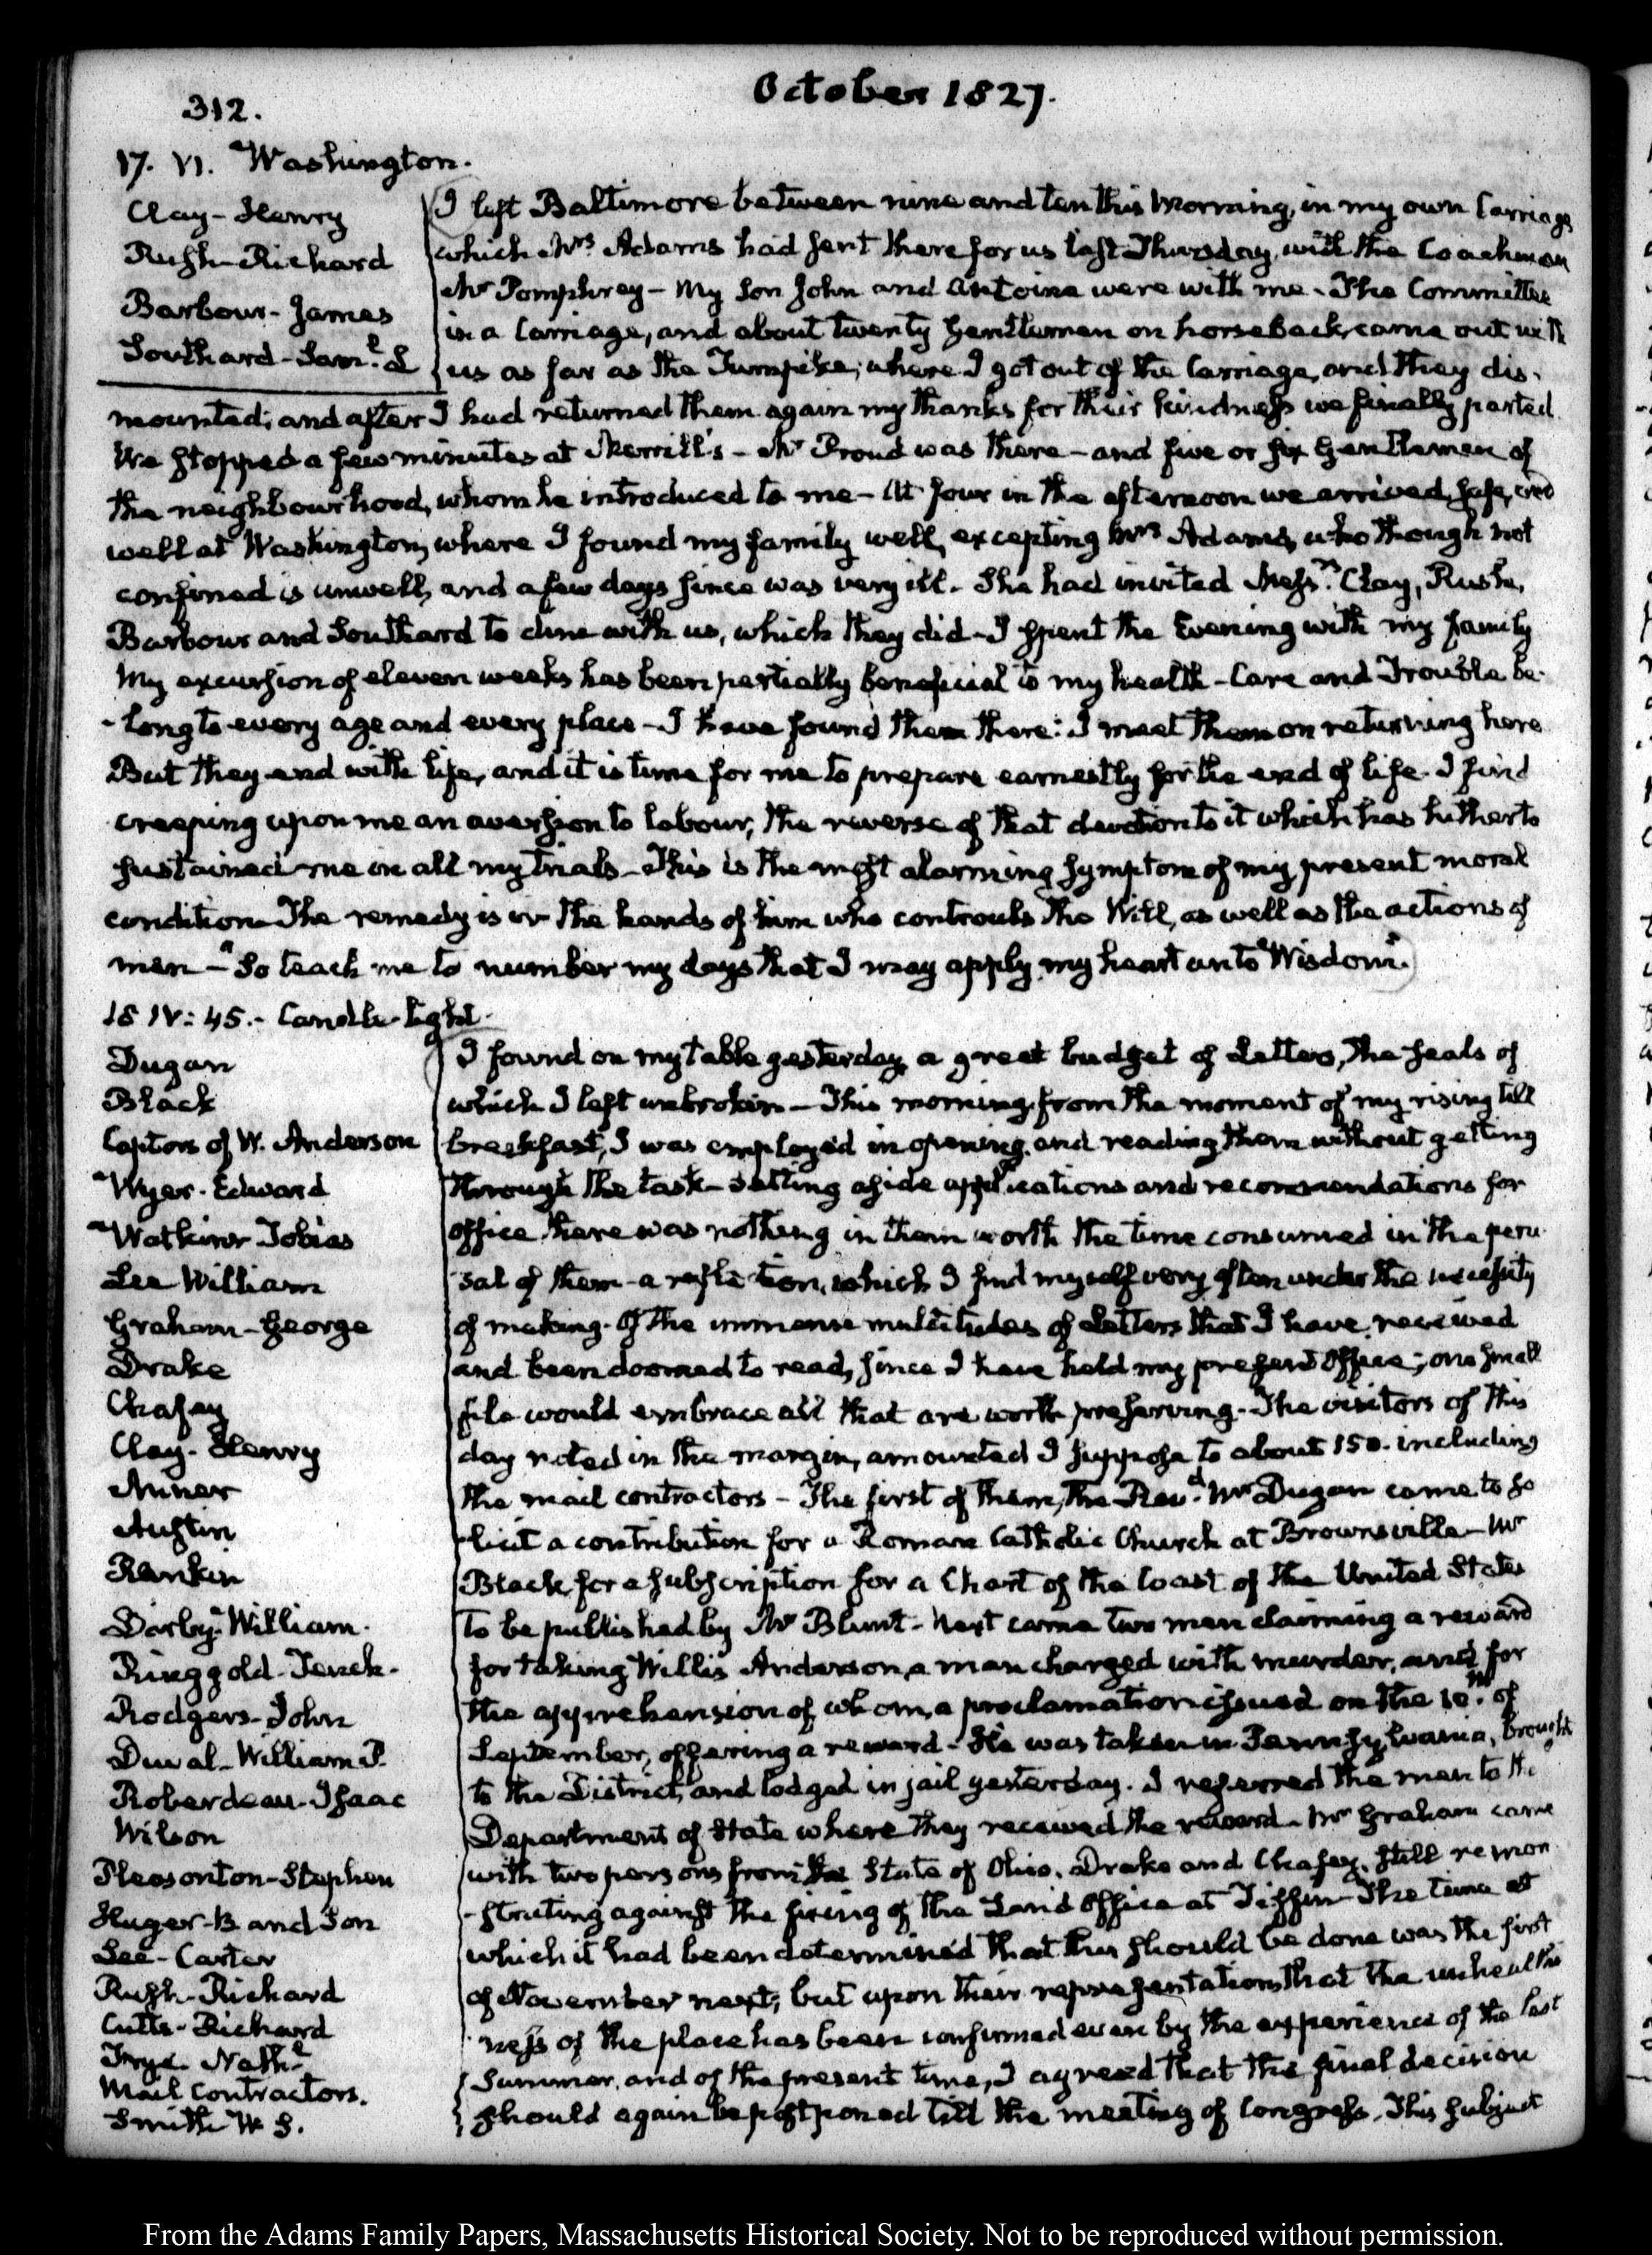 October 1827.
312.
17. VI. Washington.
Clay - Henry
Rush - Richard
Barbour - James
Southard - Saml. L
I left Baltimore between nine and ten this Morning, in my own Carriage
which Mrs Adams had sent there for us last Thursday, with the Coachman
Mr Pomphrey - My Son John and Antoine were with me - The Committee
in a Carriage, and about twenty Gentlemen on horseback, came out with
us as far as the Turnpike; where I got out of the Carriage, and they dis-
mounted; and after I had returned them again my thanks for their kindness we finally parted
We stopped a few minutes at Merrill's - Mr Proud was there - and five or six Gentlemen of
the neighbourhood, whom he introduced to me - At four in the afternoon we arrived, safe, and
well at Washington, where I found my family well, excepting Mrs Adams, who though not
confined is unwell, and a few days since was very ill. She had invited Messrs. Clay, Rush,
Barbour and Southard to dine with us, which they did - I spent the Evening with my family
My excursion of eleven weeks has been partially beneficial to my health - Care and Trouble be-
-long to every age and every place - I have found them there: I meet them on returning here
But they end with life, and it is time for me to prepare earnestly for the end of life. I find
creeping upon me an aversion to labour, the reverse of that devotion to it which has hitherto
sustained me in all my trials - This is the most alarming symptom of my present moral
condition - The remedy is in the hands of him who controuls the Will, as well as the actions of
men - "So teach me to number my days that I may apply my heart unto Wisdom".
18 IV: 45. - Candle-light.
Dugan
Black
Captors of W. Anderson
Wyer - Edward
Watkins Tobias
Lee William
Graham - George
Drake
Chafey
Clay - Henry
Anner
Austin
Rankin
Darby - William.
Ringgold - Tench -
Rodgers - John
Duval - William P.
Roberdeau - Isaac
Wilson
Pleasonton - Stephen
Huger - B and Son
Lee - Carter
Rush - Richard
Cutts - Richard
Frye Nathl.
Mail Contractors.
Smith W S.
I found on my table yesterday, a great budget of Letters, the seals of
which I left unbroken - This morning, from the moment of my rising till
breakfast, I was employed in opening and reading them without getting
through the task - Setting aside applications and recommendations for
office there was nothing in them worth the time consumed in the peru-
sal of them - a reflection, which I find myself very often under the necessity
of making. Of the immense multitudes of Letters that I have received
and been doomed to read, since I have held my present Office; one small
file would embrace all that are worth preserving. The visitors of this
day noted in the margin, amounted I suppose to about 150. including
the mail contractors - The first of them, the Revd. Mr Dugan came to so
-licit a contribution for a Roman Catholic Church at Brownsville - Mr
Black for a subscription for a Chart of the Coast of the United States
to be published by Mr Blunt - Next came two men claiming a reward
for taking Willis Anderson, a man charged with murder, and for
the apprehension of whom, a proclamation issued on the 10th. of
September, offering a reward - He was taken in Pennsylvania, brought
to the District, and lodged in jail yesterday. I referred the men to the
Department of State where they received the reward - Mr Graham came
with two persons from the State of Ohio, Drake and Chafey, still remon
-strating against the fixing of the Land Office at Tiffin - The time at
which it had been determined that this should be done was the first
of November next; but upon their representations that the unhealthi
ness of the place has been confirmed even by the experience of the last
Summer, and of the present time, I agreed that the final decision
should again be postponed till the meeting of Congress. This subject
From the Adams Family Papers, Massachusetts Historical Society. Not to be reproduced without permission.